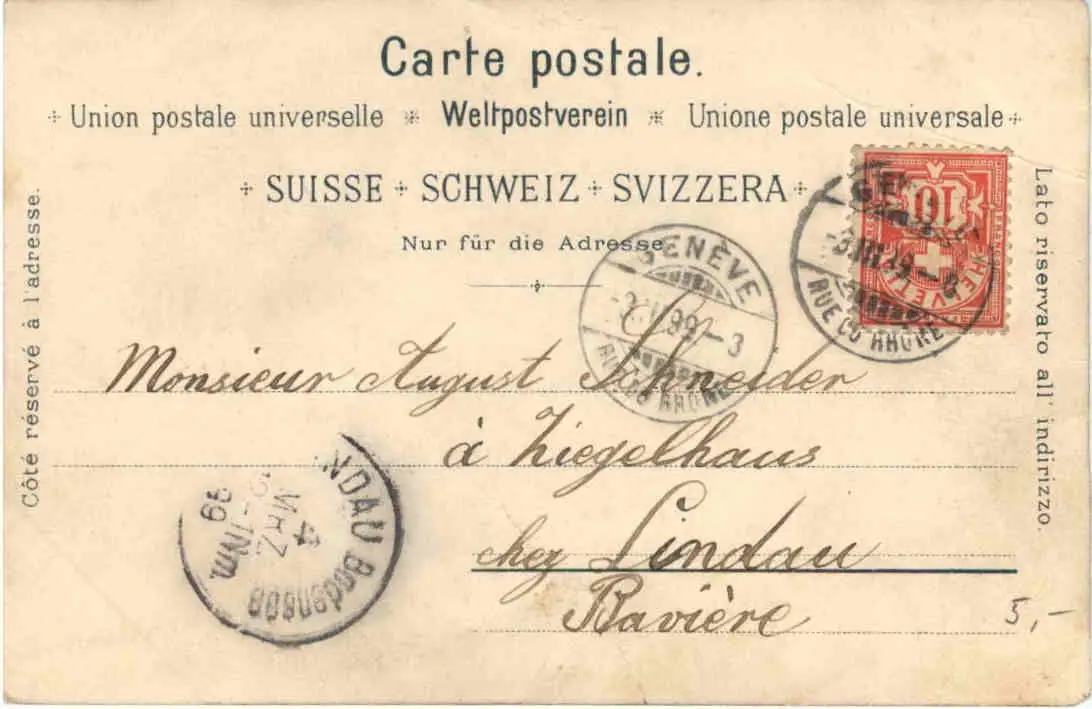 Carte postale.
Union postale universelle * Weltpostverein * Unione postale universale
SUISSE + SCHWEIZ + SVIZZERA
Nur für die Adresse.
Côté réservé à l'adresse.
Lato riservato all' indirizzo.
10
HELVETIA
RUE DU RHÔNE
GENÈVE
99 - 3
RUE DU RHÔNE
Monsieur August Schneider
à Ziegelhaus
chez Lindau
Bavière
5,-
LINDAU Bodensee
4
MRZ
Nm.
99